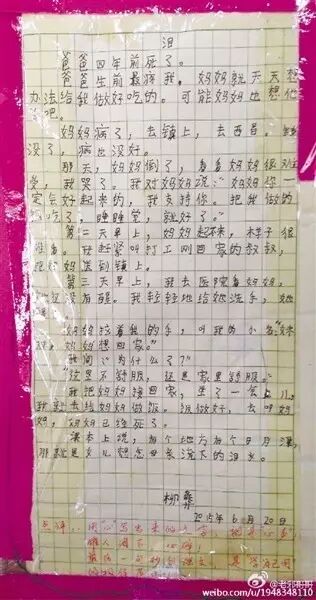 泪
爸爸四年前死了。
爸爸生前最疼我,妈妈就天天想
办法给我做好吃的。可能妈妈也想他
了吧。
妈妈病了,去镇上,去西昌。钱
没了,病也没好。
那天,妈妈倒了,看着妈妈很难
受,我哭了。我对妈妈说:“妈妈你一
定会好起来的,我支持你。把我做的
饭吃了,睡睡觉,就好了。”
第二天早上,妈妈起不来,样子很
难看。我赶紧叫打工刚回家的叔叔,
把妈妈送到镇上。
第三天早上,我去医院看妈妈,
她还没有醒。我轻轻地给她洗手,她
妈妈拉着我的手,叫我的小名:“妹
妹,妈妈想回家。”
我问:“为什么了?”
“这里不舒服,还是家里舒服。”
我把妈妈接回家,坐了一会儿,
我就去给妈妈做饭。饭做好,去叫妈
妈,妈妈已经死了。
课本上说,有个地方有个日月潭,
那就是女儿想念母亲流下的泪水。
柳彝
2015年6月20日
点评:用心写出来的文字,
weibo.com/u/1948348110